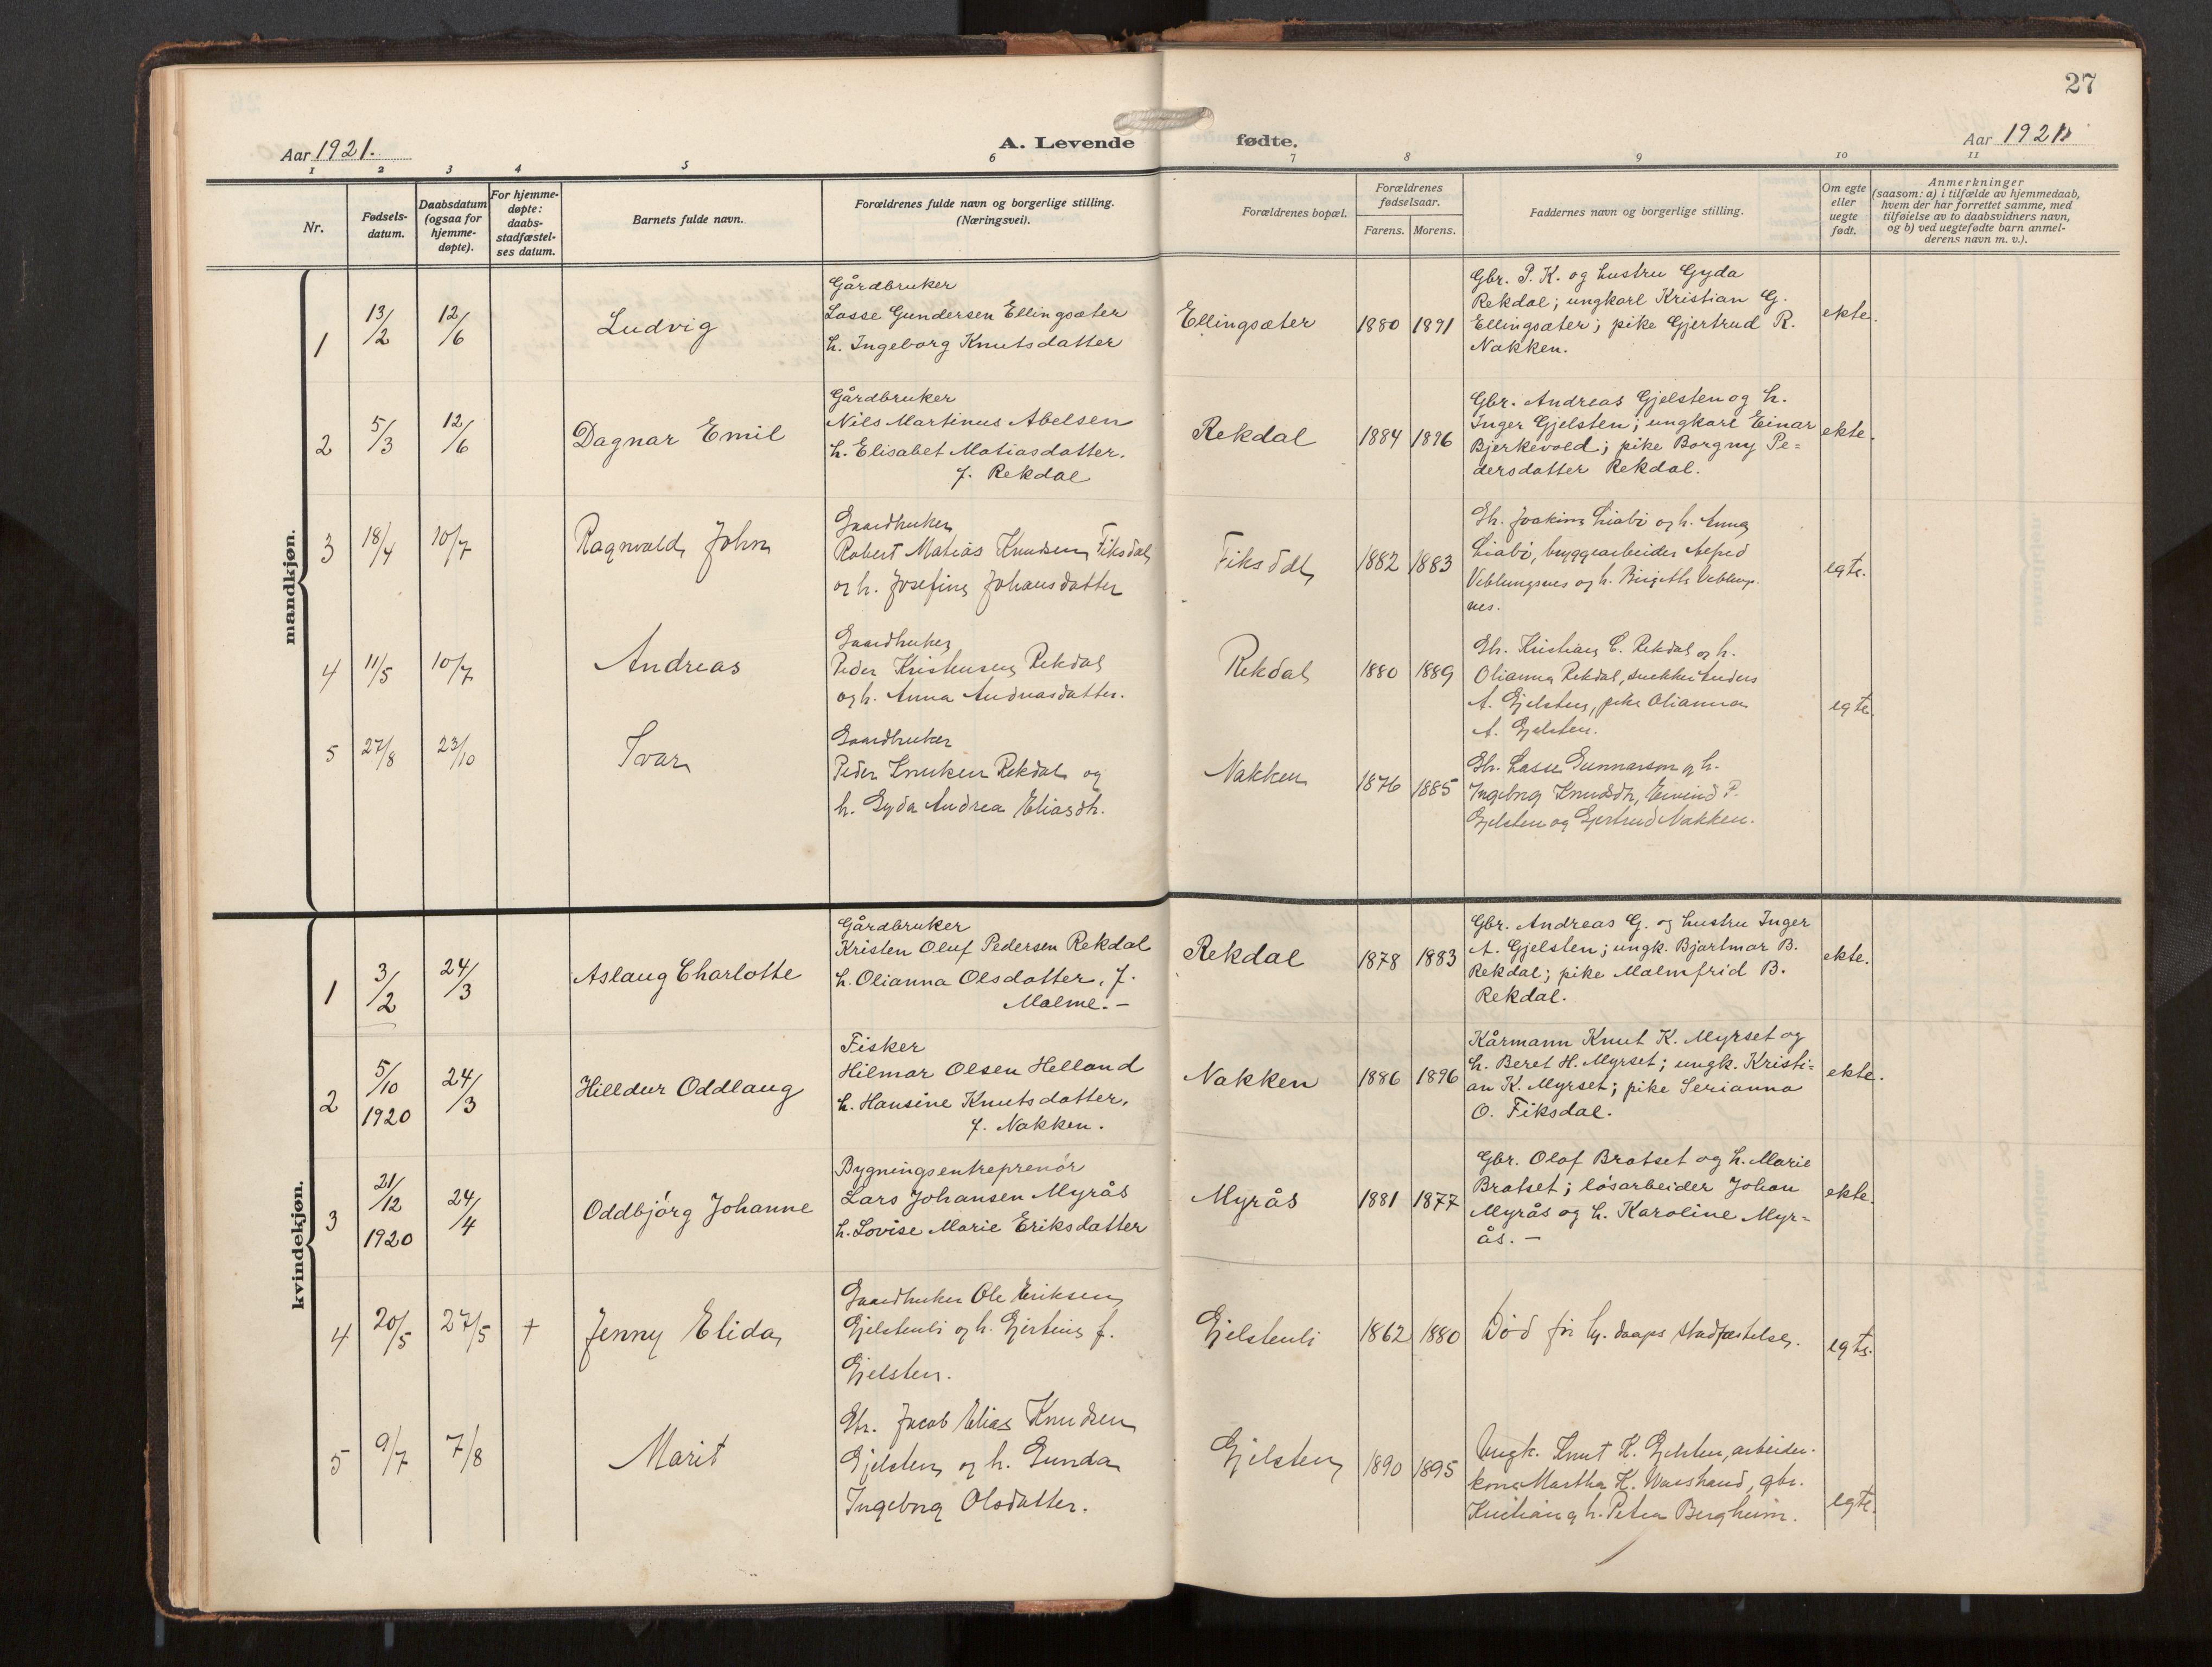 27
Aar 1921.
A. Levende fødte.
Aar 1921
1 2 3 4 5 6 7 8 9 10 11
Nr.
Fødsels-
datum.
Daabsdatum
(ogsaa for
hjemme-
døpte).
For hjemme-
døpte:
daabs-
stadfæstel-
ses datum.
Barnets fulde navn.
Forældrenes fulde navn og borgerlige stilling.
(Næringsvei).
Forældrenes bopæl.
Forældrenes
fødselsaar.
Farens. Morens.
Faddernes navn og borgerlige stilling.
Om egte
eller
uegte
født.
Anmerkninger
(saasom: a) i tilfælde av hjemmedaab,
hvem der har forrettet samme, med
tilføielse av to daabsvidners navn,
og b) ved uegtefødte barn anmel-
derens navn m. v.).
mandkjøn.
1
13/2
12/6
Ludvig
Gårdbruker
Lasse Gundersen Ellingsæter
h. Ingeborg Knutsdatter
Ellingsæter
1880 1891
Gbr. P. K. og hustru Gyda
Rekdal; ungkarl Kristian G.
Ellingsæter; pike Gjertrud R.
Nakken.
ekte.
2
5/3
12/6
Dagnar Emil
Gårdbruker
Nils Martinus Abelsen
h. Elisabet Matiasdatter.
f. Rekdal
Rekdal
1884 1896
Gbr. Andreas Gjelsten og h.
Inger Gjelsten; ungkarl Einar
Bjerkevold; pike Borgny Pe=
dersdatter Rekdal.
ekte.
3
18/4
10/7
Ragnvald John
Gaardbruker
Robert Matias Knudsen Fiksdal
og h. Josefine Johansdatter
Fiksdal
1882 1883
Gb. Joakim Liabø og h. Anna
Liabø, bryggearbeider
Veblungsnes og h. Birgitte Veblungs-
nes.
egte.
4
11/5
10/7
Andreas
Gaardbruker
Peder Kristensen Rekdal
og h. Anna Andreasdatter.
Rekdal
1880 1889
Gb. Kristian C. Rekdal og h.
Olianna Rekdal, snekker Anders
A. Gjelsten, pike Olianna
A. Gjelsten.
egte.
5
27/8
23/10
Ivar
Gaardbruker
Peder Knutsen Rekdal og
h. Gyda Andrea Eliasdtr.
Nakken
1876 1885
Gb. Lasse Gunnarson og h.
Ingebrg Knudsdtr, Eivind P.
Gjelsten og Gjertrud Nakken.
kvindekjøn.
1
3/2
24/3
Aslaug Charlotte
Gårdbruker
Kristen Oluf Pedersen Rekdal
h. Olianna Olsdatter, f.
Malme. –
Rekdal
1878 1883
Gbr. Andreas G. og hustru Inger
A. Gjelsten; ungk. Bjartmar B.
Rekdal; pike Malmfrid B.
Rekdal.
ekte.
2
5/10
1920
24/3
Hilldur Oddlaug
Fisker
Hilmar Olsen Helland
h. Hansine Knutsdatter,
f. Nakken.
Nakken
1886 1896
Kårmann Knut K. Myrset og
h. Beret H. Myrset; ungk. Kristi=
an K. Myrset; pike Serianna
O. Fiksdal.
ekte.
3
21/12
1920
24/4
Oddbjørg Johanne
Bygningsentreprenør
Lars Johansen Myrås
h. Lovise Marie Eriksdatter
Myrås
1881 1877
Gbr. Olaf Bratset og h. Marie
Bratset; løsarbeider Johan
Myrås og h. Karoline Myr=
ås. –
ekte.
4
20/5
27/5
†
Jenny Elida
Gaardbruker Ole Eriksen
Gjelstenli og h. Gjertine f.
Gjelsten.
Gjelstenli
1862 1880
Død før hj. daaps stadfæstelse.
egte.
5
9/7
7/8
Marit
Gbr. Jacob Elias Knudsen
Gjelsten og h. Gunda
Ingebrg Olsdatter.
Gjelsten
1890 1895
Ungk. Knut K. Gjelsten, arbeider-
kone Martha K. gbr.
Kristian og h. Petra Bergheim.
egte.